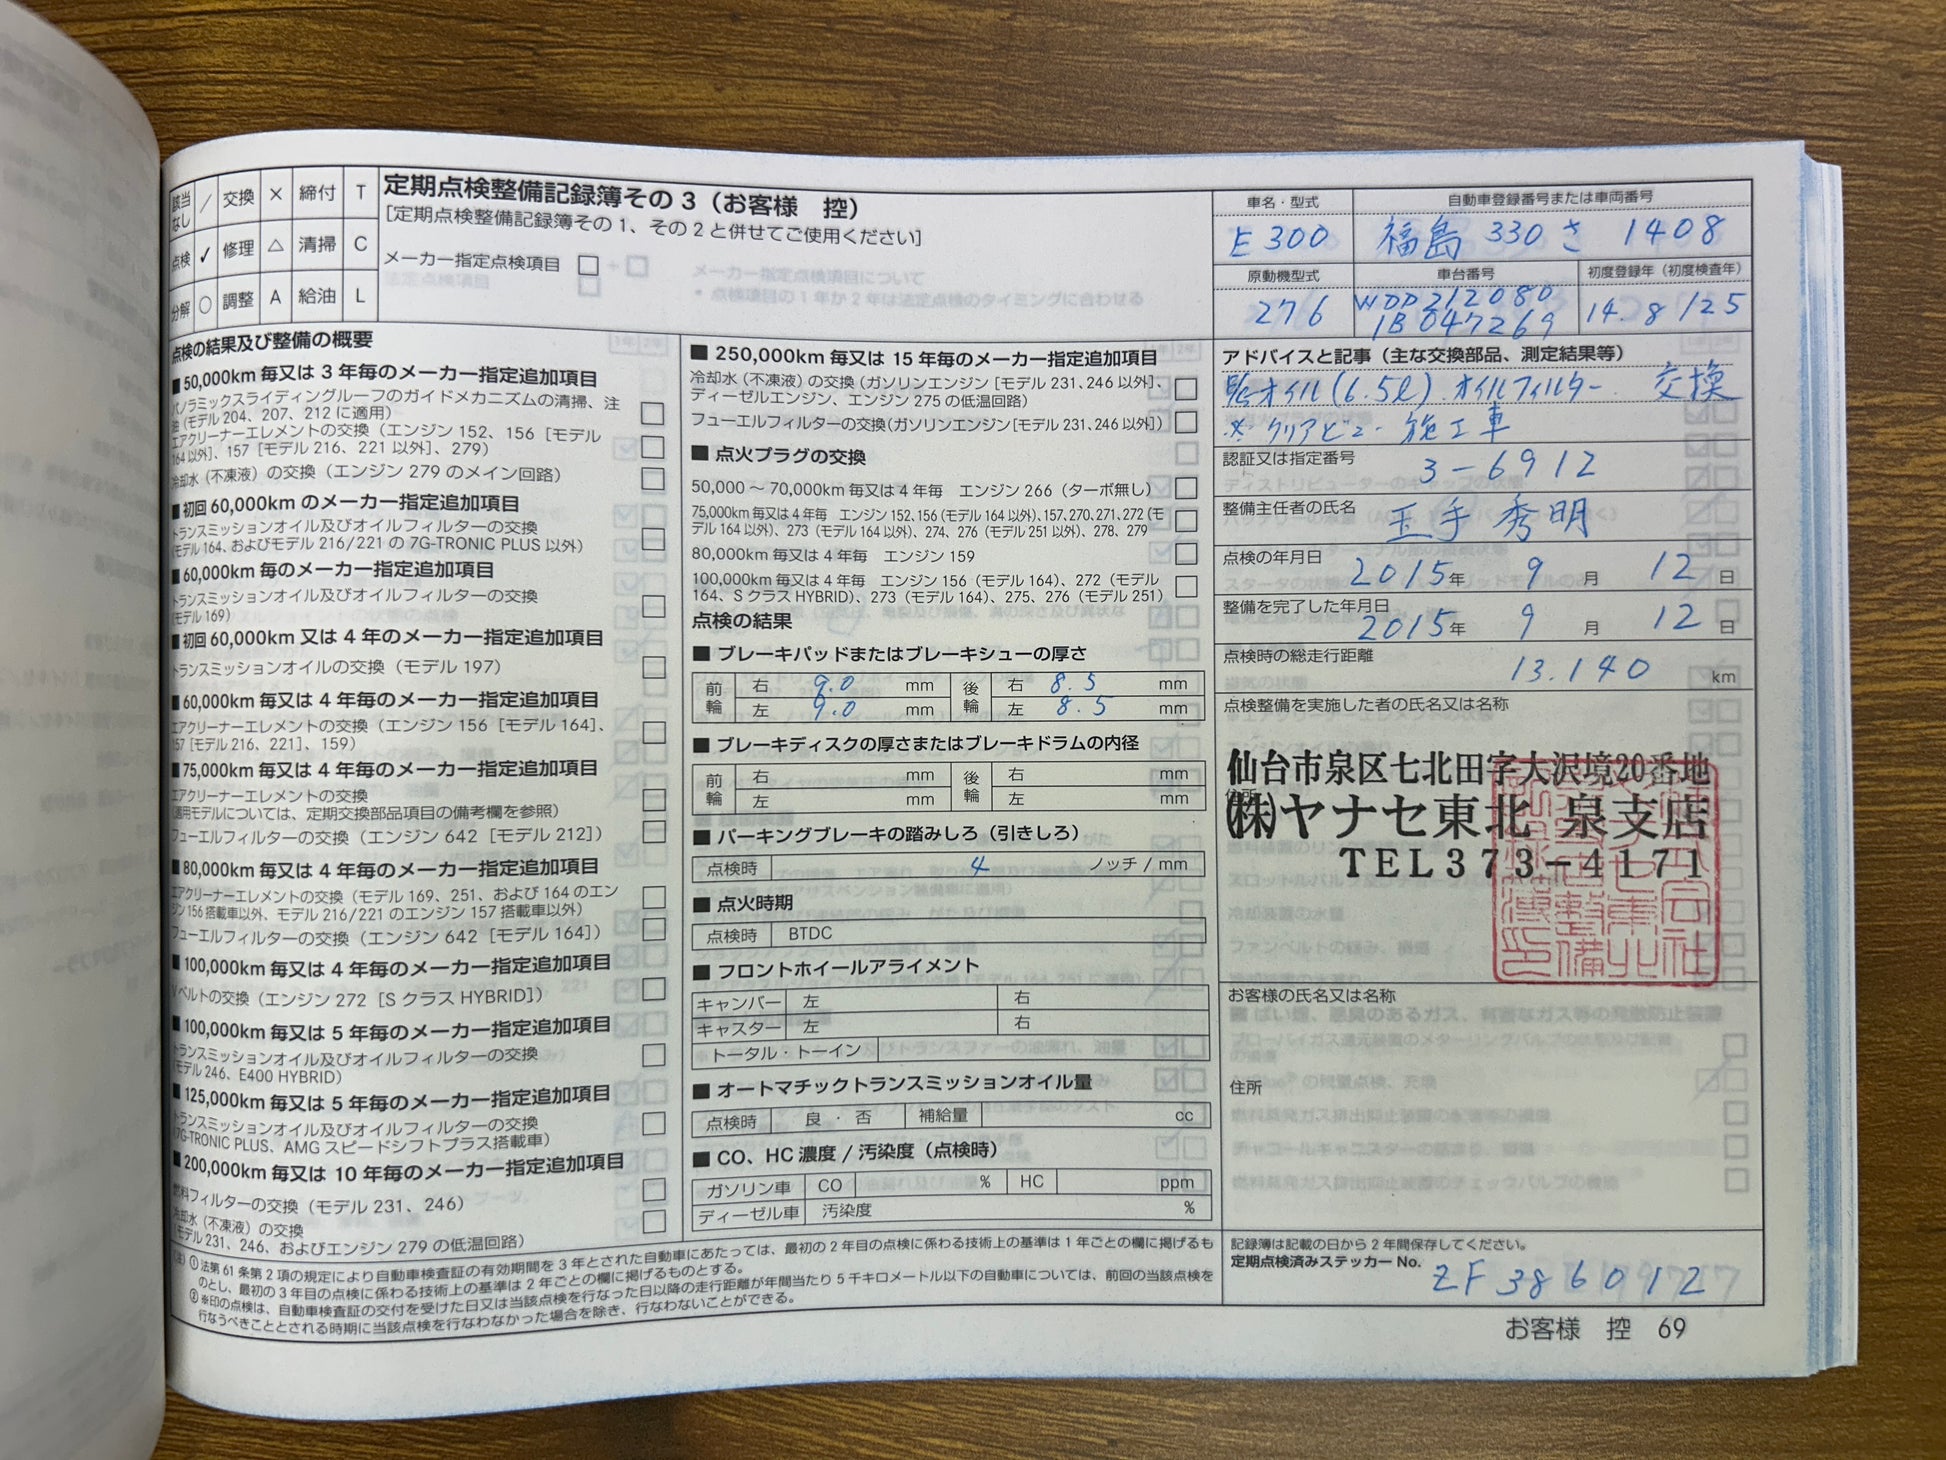 該当なし ／ 交換 × 締付 T
点検 ✓ 修理 △ 清掃 C
分解 ○ 調整 A 給油 L
定期点検整備記録簿その 3（お客様　控）
[定期点検整備記録簿その 1、その 2 と併せてご使用ください]
メーカー指定点検項目 □
点検の結果及び整備の概要
■ 50,000km 毎又は 3 年毎のメーカー指定追加項目
パノラミックスライディングルーフのガイドメカニズムの清掃、注
油（モデル 204、207、212 に適用） □
エアクリーナーエレメントの交換（エンジン 152、156［モデル
164 以外］、157［モデル 216、221 以外］、279） □
冷却水（不凍液）の交換（エンジン 279 のメイン回路） □
■ 初回 60,000km のメーカー指定追加項目
トランスミッションオイル及びオイルフィルターの交換
（モデル 164、およびモデル 216/221 の 7G-TRONIC PLUS 以外） □
■ 60,000km 毎のメーカー指定追加項目
トランスミッションオイル及びオイルフィルターの交換
（モデル 169） □
■ 初回 60,000km 又は 4 年のメーカー指定追加項目
トランスミッションオイルの交換（モデル 197） □
■ 60,000km 毎又は 4 年毎のメーカー指定追加項目
エアクリーナーエレメントの交換（エンジン 156［モデル 164］、
157［モデル 216、221］、159） □
■ 75,000km 毎又は 4 年毎のメーカー指定追加項目
エアクリーナーエレメントの交換
（適用モデルについては、定期交換部品項目の備考欄を参照） □
フューエルフィルターの交換（エンジン 642［モデル 212］） □
■ 80,000km 毎又は 4 年毎のメーカー指定追加項目
エアクリーナーエレメントの交換（モデル 169、251、および 164 のエン
ジン 156 搭載車以外、モデル 216/221 のエンジン 157 搭載車以外） □
フューエルフィルターの交換（エンジン 642［モデル 164］） □
■ 100,000km 毎又は 4 年毎のメーカー指定追加項目
V ベルトの交換（エンジン 272［S クラス HYBRID］） □
■ 100,000km 毎又は 5 年毎のメーカー指定追加項目
トランスミッションオイル及びオイルフィルターの交換
（モデル 246、E400 HYBRID） □
■ 125,000km 毎又は 5 年毎のメーカー指定追加項目
トランスミッションオイル及びオイルフィルターの交換
（7G-TRONIC PLUS、AMG スピードシフトプラス搭載車） □
■ 200,000km 毎又は 10 年毎のメーカー指定追加項目
燃料フィルターの交換（モデル 231、246） □
冷却水（不凍液）の交換
（モデル 231、246、およびエンジン 279 の低温回路） □
■ 250,000km 毎又は 15 年毎のメーカー指定追加項目
冷却水（不凍液）の交換（ガソリンエンジン［モデル 231、246 以外］、
ディーゼルエンジン、エンジン 275 の低温回路） □
フューエルフィルターの交換（ガソリンエンジン［モデル 231、246 以外］） □
■ 点火プラグの交換
50,000 ～ 70,000km 毎又は 4 年毎　エンジン 266（ターボ無し） □
75,000km 毎又は 4 年毎　エンジン 152、156（モデル 164 以外）、157、270、271、272（モ
デル 164 以外）、273（モデル 164 以外）、274、276（モデル 251 以外）、278、279 □
80,000km 毎又は 4 年毎　エンジン 159 □
100,000km 毎又は 4 年毎　エンジン 156（モデル 164）、272（モデル
164、S クラス HYBRID）、273（モデル 164）、275、276（モデル 251） □
点検の結果
■ ブレーキパッドまたはブレーキシューの厚さ
前輪 右 9.0 mm 後輪 右 8.5 mm
左 9.0 mm 左 8.5 mm
■ ブレーキディスクの厚さまたはブレーキドラムの内径
前輪 右 mm 後輪 右 mm
左 mm 左 mm
■ パーキングブレーキの踏みしろ（引きしろ）
点検時 4 ノッチ / mm
■ 点火時期
点検時 BTDC
■ フロントホイールアライメント
キャンバー 左 右
キャスター 左 右
トータル・トーイン
■ オートマチックトランスミッションオイル量
点検時 良・否 補給量 cc
■ CO、HC 濃度 / 汚染度（点検時）
ガソリン車 CO % HC ppm
ディーゼル車 汚染度 %
（注）① 法第 61 条第 2 項の規定により自動車検査証の有効期間を 3 年とされた自動車にあたっては、最初の 2 年目の点検に係わる技術上の基準は 1 年ごとの欄に掲げるも
のとし、最初の 3 年目の点検に係わる技術上の基準は 2 年ごとの欄に掲げるものとする。
② ※印の点検は、自動車検査証の交付を受けた日又は当該点検を行なった日以降の走行距離が年間当たり 5 千キロメートル以下の自動車については、前回の当該点検を
行なうべきこととされる時期に当該点検を行なわなかった場合を除き、行なわないことができる。
車名・型式 自動車登録番号または車両番号
E 300 福島 330 さ 1408
原動機型式 車台番号 初度登録年（初度検査年）
276 WDD212080 1B047269 14. 8 / 25
アドバイスと記事（主な交換部品、測定結果等）
オイル（6.5ℓ）オイルフィルター 交換
※ クリアビュー 施工車
認証又は指定番号
3-6912
整備主任者の氏名 玉手 秀明
点検の年月日
2015 年 9 月 12 日
整備を完了した年月日
2015 年 9 月 12 日
点検時の総走行距離
13.140 km
点検整備を実施した者の氏名又は名称
仙台市泉区七北田字大沢境20番地
住所
㈱ヤナセ東北 泉支店
TEL373-4171
お客様の氏名又は名称
住所
記録簿は記載の日から 2 年間保存してください。
定期点検済みステッカー No.
ZF386012
お客様　控　69